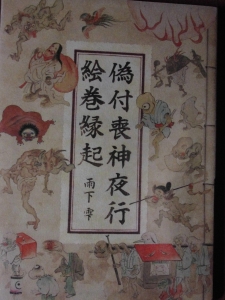 偽付喪神夜行
絵巻縁起
雨下雫